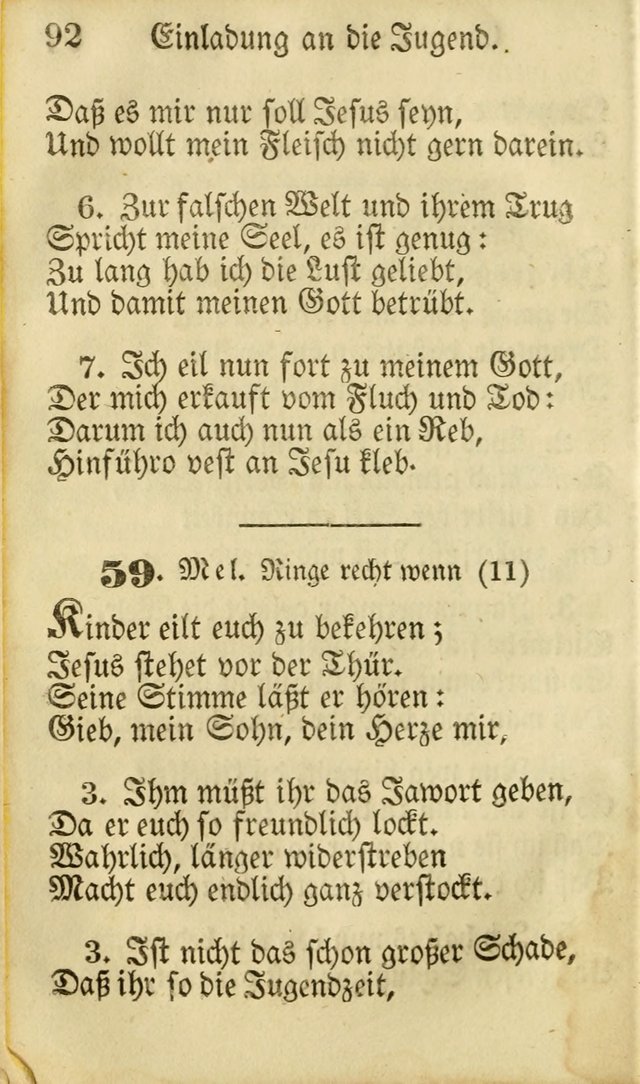 92 Einladung an die Jugend..
Daß es mir nur soll Jesus seyn,
Und wollt mein Fleisch nicht gern darein.
6. Zur falschen Welt und ihrem Trug
Spricht meine Seel, es ist genug:
Zu lang hab ich die Lust geliebt,
Und damit meinen Gott betrübt.
7. Ich eil nun fort zu meinem Gott,
Der mich erkauft vom Fluch und Tod:
Darum ich auch nun als ein Reb,
Hinführo vest an Jesu kleb.
59. Mel. Ringe recht wenn (11)
Kinder eilt euch zu bekehren;
Jesus stehet vor der Thür.
Seine Stimme läßt er hören:
Gieb, mein Sohn, dein Herze mir,
3. Ihm müßt ihr das Jawort geben,
Da er euch so freundlich lockt.
Wahrlich, länger widerstreben
Macht euch endlich ganz verstockt.
3. Ist nicht das schon großer Schade,
Daß ihr so die Jugendzeit,